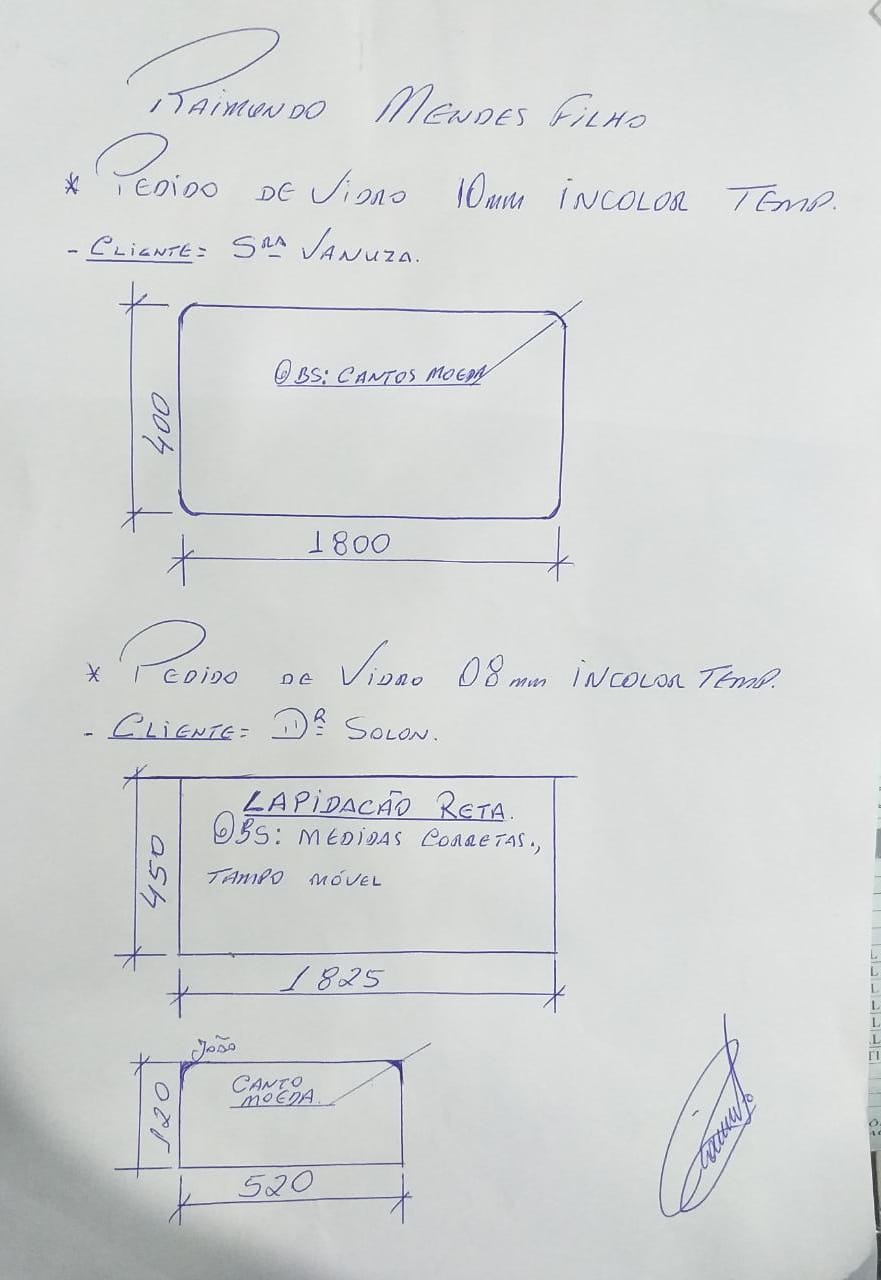 RAIMUNDO MENDES FILHO
* PEDIDO DE VIDRO 10mm INCOLOR TEMP.
- CLIENTE= SRA VANUZA.
OBS: CANTOS MOEDA
400
1800
* PEDIDO DE VIDRO 08mm INCOLOR TEMP.
- CLIENTE= DR SOLON.
LAPIDACÃO RETA.
OBS: MEDIDAS CORRETAS.,
TAMPO MÓVEL
450
1825
João
CANTO
MOEDA.
120
520